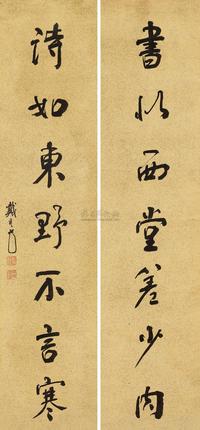 書似西堂差少肉
詩如東野不言寒